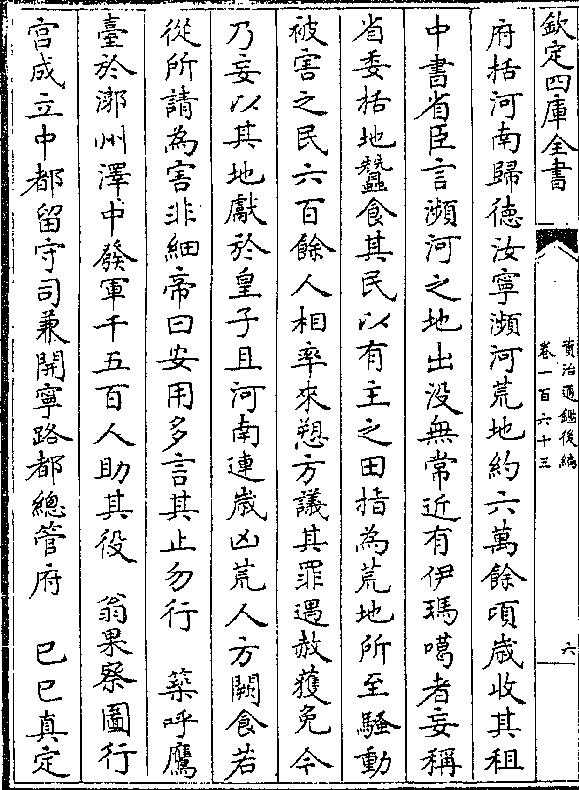 欽定四庫全書
資治通鑑後編
卷一百六十三
六
府括河南歸德汝寧瀕河荒地約六萬餘頃歲收其租
中書省臣言瀕河之地出没無常近有伊瑪噶者妄稱
省委括地蠶食其民以有主之田指為荒地所至騷動
被害之民六百餘人相率來愬方議其罪遇赦獲免今
乃妄以其地獻於皇子且河南連歲凶荒人方闕食若
從所請為害非細帝曰安用多言其止勿行　築呼鷹
臺於漷州澤中發軍千五百人助其役　翁果察圖行
宫成立中都留守司兼開寧路都總管府　己巳真定